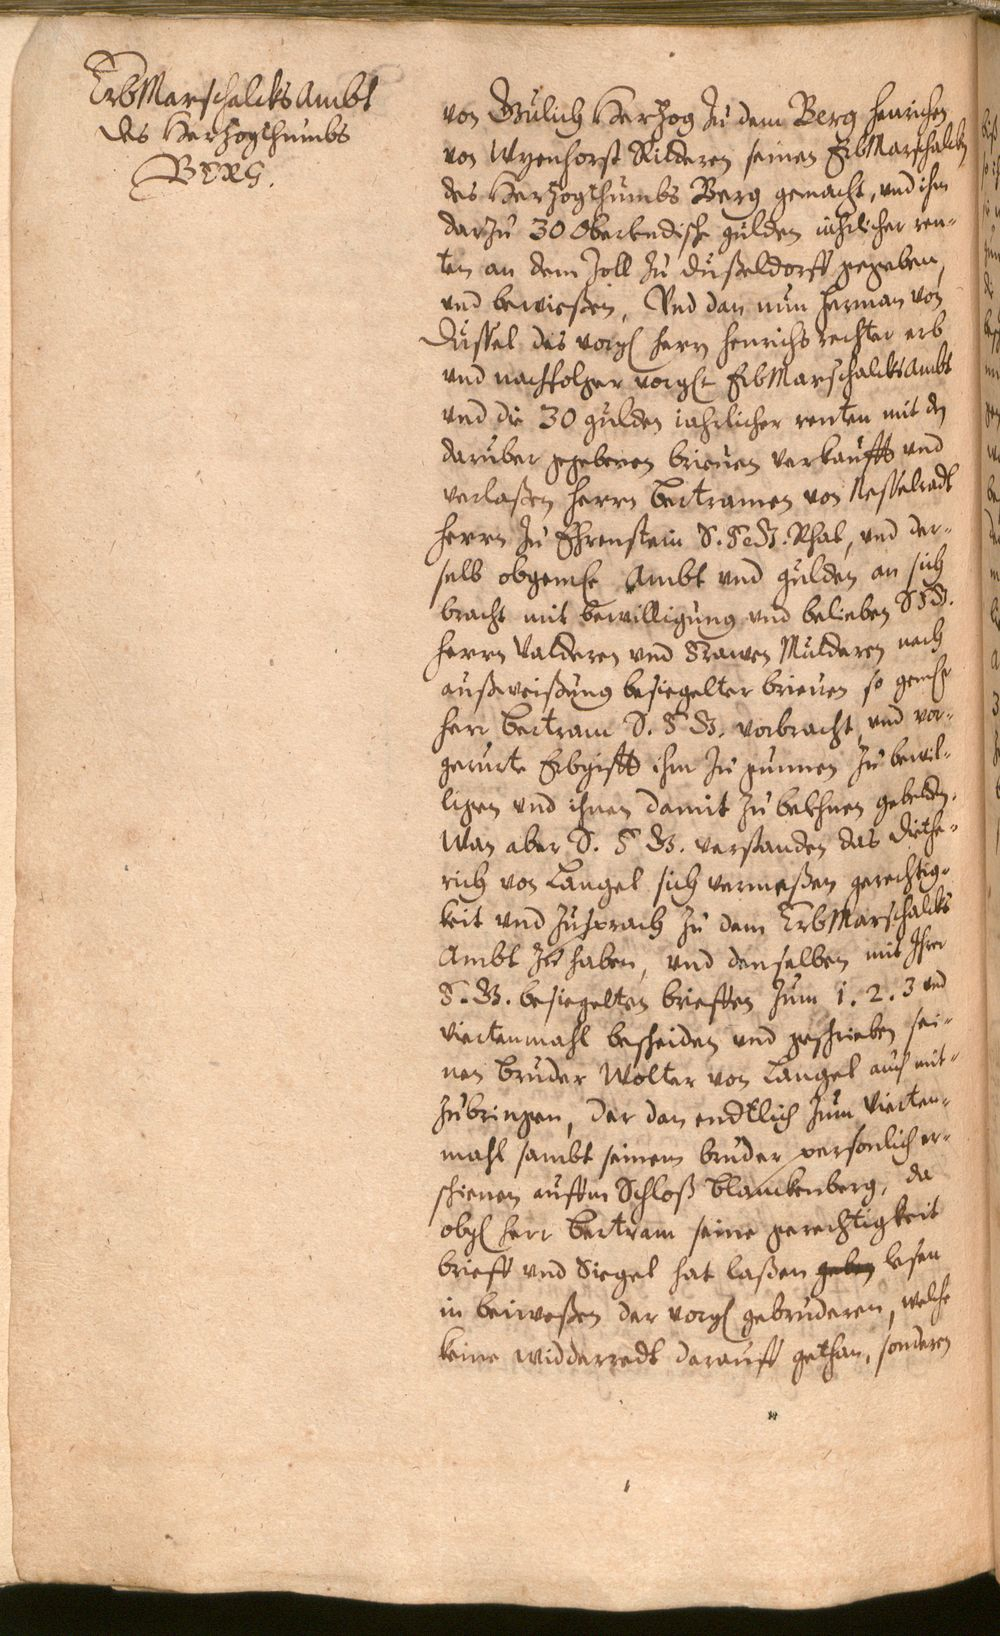 ErbMarschalcks Ambt
des Herzogthumbs
BERG.
von Gülich Herzog zu dem Berg Henrichen
von Wyenhorst Ritteren seinen ErbMarschalcken
des Herzogthumbs Berg gemacht, und ihm
darzu 30 Oberlendische gulden iahrlicher ren-
ten an dem Zoll zu Dußeldorff gegeben,
und bewießen, Und dan nun Herman von
Dussel des vorg herrn Henrichs rechter erb
und nachfolger vorgt ErbMarschalcks Ambt
und die 30 gulden iahrlicher renten mit den
daruber gegebenen brieuen verkaufft und
verlaßen herrn Bertramen von Nesselradt
herrn zu Ehrenstein S. F. G. Rhat, und der-
selb obgemte Ambt und gulden an sich
bracht mit bewilligung und belieben S F G.
herrn Vatteren und Frawen Mutteren nach
außweißung besiegelter brieuen so gemte
herr Bertram S. F G. vorbracht, und vor-
gerurte Erbgifft ihm zu gunnen zu bewil-
ligen und ihnen damit zu belehnen gebetten.
Wan aber S. F G. verstanden das Diethe-
rich von Langel sich vermeßen gerechtig-
keit und zusprach zu dem ErbMarschalcks
Ambt zu haben, und denselben mit Ihren
F. G. besiegelten brieffen zum 1. 2. 3 und
viertenmahl bescheiden und geschrieben sei-
nen bruder Wolter von Langel auch mit-
zubringen, der dan endtlich zum vierten-
mahl sambt seinem bruder persönlich er-
schienen auffm Schloß Blanckenberg, da
obg herr Bertram seine gerechtigkeit
brieff und Siegel hat laßen geben lesen
in beiweßen der vorg gebruderen, welche
keine widderredt darauff gethan, sonderen